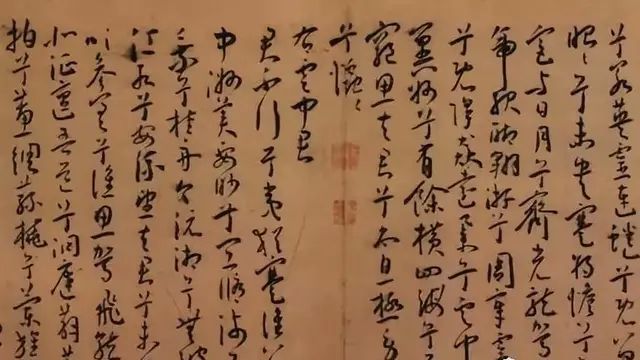 兮若英靈連蜷兮既
昭々兮未央蹇將憺兮
宮與日月兮齊光龍駕
帝服聊翱游兮周章靈
兮既降猋遠舉兮雲中
冀州兮有餘橫四海兮
窮思夫君兮太息極勞
兮忡々
右雲中君
君不行兮夷猶蹇誰留
中洲美要眇兮宜脩沛
乘兮桂舟令沅湘兮無波
江水兮安流望夫君兮未
吹參差兮誰思駕飛龍
北征邅吾道兮洞庭薜荔
拍兮蕙綢蓀橈兮蘭旌